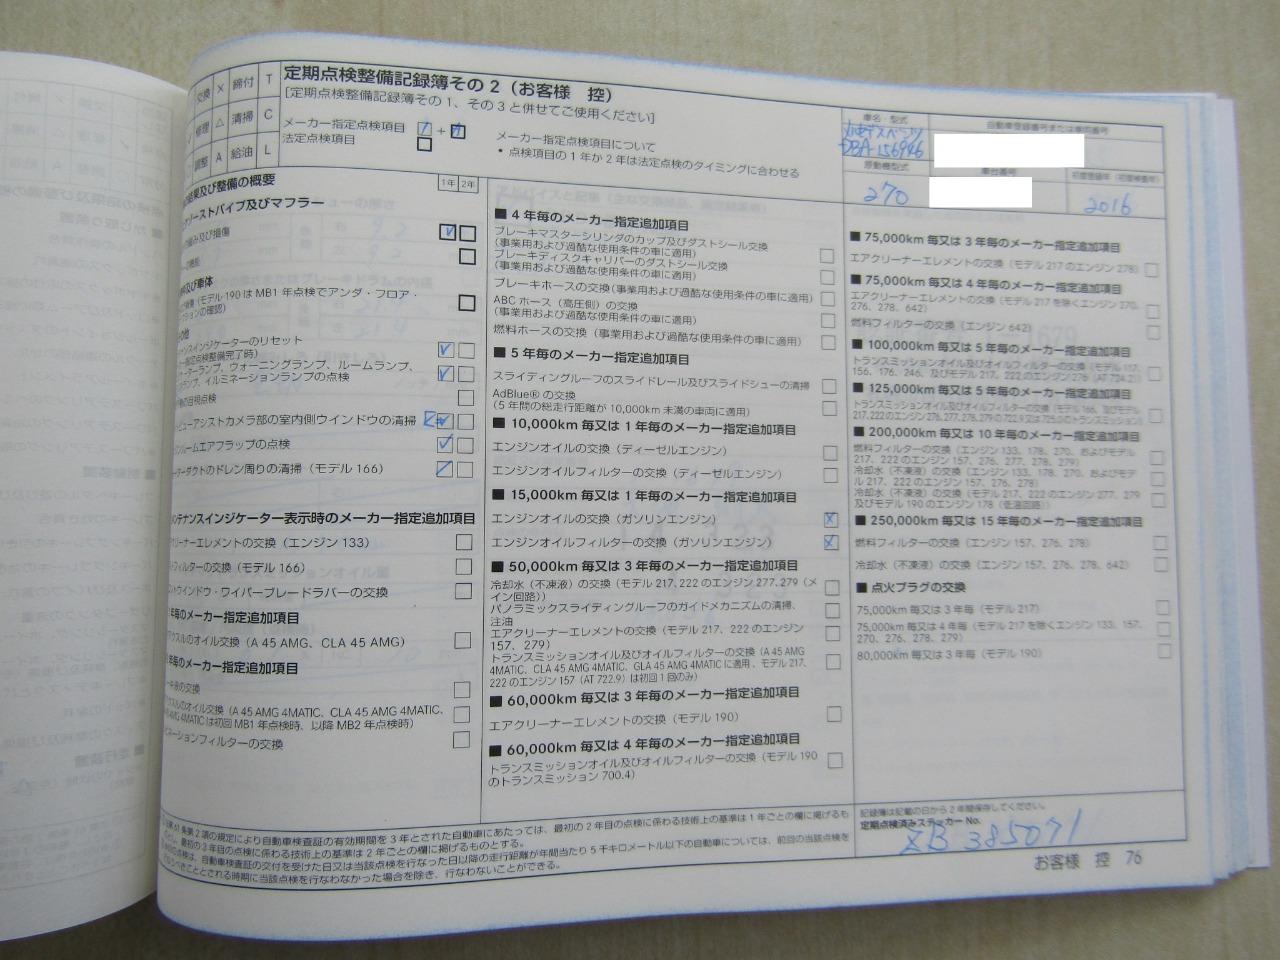 定期点検整備記録簿その2（お客様 控）
[定期点検整備記録簿その1、その3と併せてご使用ください]
交換 × 締付 T
修理 △ 清掃 C
調整 A 給油 L
メーカー指定点検項目 +
法定点検項目
メーカー指定点検項目について
• 点検項目の1年か2年は法定点検のタイミングに合わせる
車名・型式
自動車登録番号または車両番号
DBA-156946
原動機型式
車台番号
初度登録年（初度検査年）
270
2016
結果及び整備の概要
1年 2年
ゾーストパイプ及びマフラー
み及び損傷
及び車体
（モデル190はMB1年点検でアンダ・フロア・
の確認）
ナンスインジケーターのリセット
点検整備完了時）
ーターランプ、ウォーニングランプ、ルームランプ、
ランプ、イルミネーションランプの点検
の目視点検
ビューアシストカメラ部の室内側ウインドウの清掃
ンルームエアフラップの点検
ーターダクトのドレン周りの清掃（モデル166）
メンテナンスインジケーター表示時のメーカー指定追加項目
クリーナーエレメントの交換（エンジン133）
フィルターの交換（モデル166）
ントウインドウ・ワイパーブレードラバーの交換
年毎のメーカー指定追加項目
アクスルのオイル交換（A 45 AMG、CLA 45 AMG）
年毎のメーカー指定追加項目
の交換
スルのオイル交換（A 45 AMG 4MATIC、CLA 45 AMG 4MATIC、
AMG 4MATICは初回MB1年点検時、以降MB2年点検時）
ネーションフィルターの交換
■ 4年毎のメーカー指定追加項目
ブレーキマスターシリンダのカップ及びダストシール交換
（事業用および過酷な使用条件の車に適用）
ブレーキディスクキャリパーのダストシール交換
（事業用および過酷な使用条件の車に適用）
ブレーキホースの交換（事業用および過酷な使用条件の車に適用）
ABCホース（高圧側）の交換
（事業用および過酷な使用条件の車に適用）
燃料ホースの交換（事業用および過酷な使用条件の車に適用）
■ 5年毎のメーカー指定追加項目
スライディングルーフのスライドレール及びスライドシューの清掃
AdBlue®の交換
（5年間の総走行距離が10,000km未満の車両に適用）
■ 10,000km毎又は1年毎のメーカー指定追加項目
エンジンオイルの交換（ディーゼルエンジン）
エンジンオイルフィルターの交換（ディーゼルエンジン）
■ 15,000km毎又は1年毎のメーカー指定追加項目
エンジンオイルの交換（ガソリンエンジン）
エンジンオイルフィルターの交換（ガソリンエンジン）
■ 50,000km毎又は3年毎のメーカー指定追加項目
冷却水（不凍液）の交換（モデル217、222のエンジン277、279（メ
イン回路））
パノラミックスライディングルーフのガイドメカニズムの清掃、
注油
エアクリーナーエレメントの交換（モデル217、222のエンジン
157、279）
トランスミッションオイル及びオイルフィルターの交換（A 45 AMG
4MATIC、CLA 45 AMG 4MATIC、GLA 45 AMG 4MATICに適用、モデル217、
222のエンジン157（AT 722.9）は初回1回のみ）
■ 60,000km毎又は3年毎のメーカー指定追加項目
エアクリーナーエレメントの交換（モデル190）
■ 60,000km毎又は4年毎のメーカー指定追加項目
トランスミッションオイル及びオイルフィルターの交換（モデル190
のトランスミッション700.4）
■ 75,000km毎又は3年毎のメーカー指定追加項目
エアクリーナーエレメントの交換（モデル217のエンジン278）
■ 75,000km毎又は4年毎のメーカー指定追加項目
エアクリーナーエレメントの交換（モデル217を除くエンジン270、
276、278、642）
燃料フィルターの交換（エンジン642）
■ 100,000km毎又は5年毎のメーカー指定追加項目
トランスミッションオイル及びオイルフィルターの交換（モデル117、
156、176、246、及びモデル217、222のエンジン276（AT 724.2））
■ 125,000km毎又は5年毎のメーカー指定追加項目
トランスミッションオイル及びオイルフィルターの交換（モデル166、及びモデル
■ 200,000km毎又は10年毎のメーカー指定追加項目
燃料フィルターの交換（エンジン133、178、270、およびモデ
ル217、222のエンジン157、276、277、278、279）
冷却水（不凍液）の交換（エンジン133、178、270、およびモデ
ル217、222のエンジン157、276、278）
冷却水（不凍液）の交換（モデル217、222のエンジン277、279
及びモデル190のエンジン178（低温回路））
■ 250,000km毎又は15年毎のメーカー指定追加項目
燃料フィルターの交換（エンジン157、276、278）
冷却水（不凍液）の交換（エンジン157、276、278、642）
■ 点火プラグの交換
75,000km毎又は3年毎（モデル217）
75,000km毎又は4年毎（モデル217を除くエンジン133、157、
270、276、278、279）
80,000km毎又は3年毎（モデル190）
条第2項の規定により自動車検査証の有効期間を3年とされた自動車にあたっては、最初の2年目の点検に係わる技術上の基準は1年ごとの欄に掲げるも
最初の3年目の点検に係わる技術上の基準は2年ごとの欄に掲げるものとする。
点検は、自動車検査証の交付を受けた日又は当該点検を行なった日以降の走行距離が年間当たり5千キロメートル以下の自動車については、前回の当該点検を
こととされる時期に当該点検を行なわなかった場合を除き、行なわないことができる。
記録簿は記載の日から2年間保存してください。
定期点検済みステッカーNo.
ZB 385071
お客様 控 76